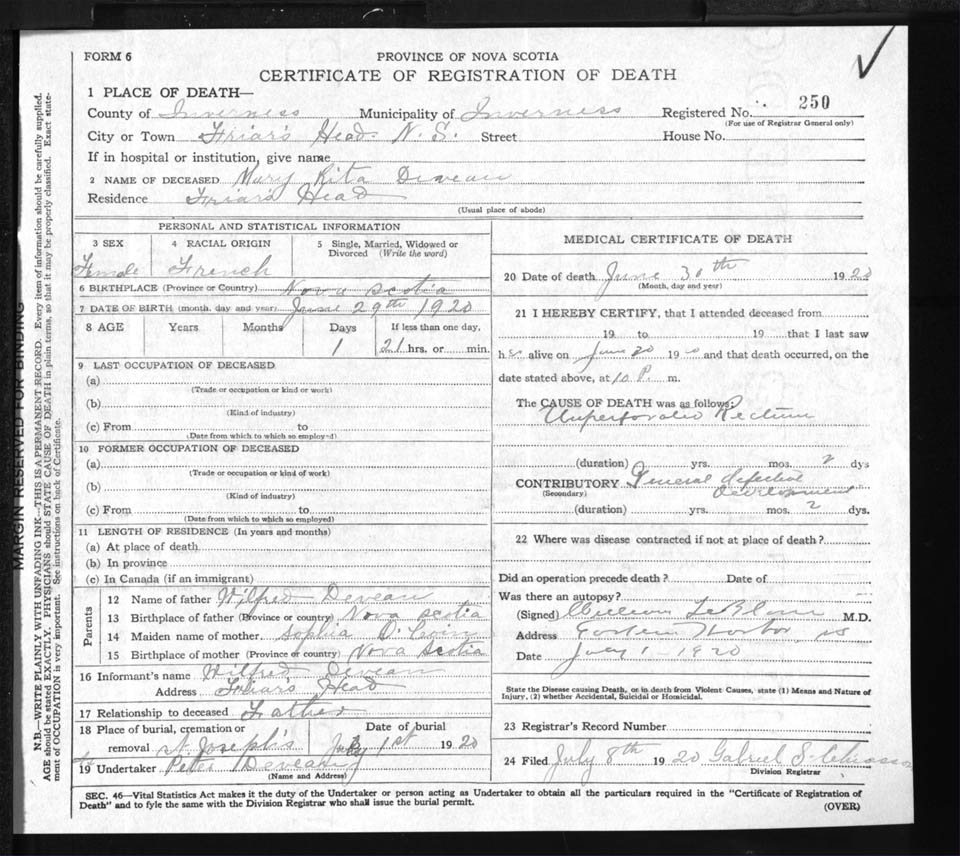 FORM 6
PROVINCE OF NOVA SCOTIA
CERTIFICATE OF REGISTRATION OF DEATH
1 PLACE OF DEATH—
County of Inverness Municipality of Inverness Registered No. 250
(For use of Registrar General only)
City or Town Friar's Head N. S. Street House No.
If in hospital or institution, give name
2 NAME OF DECEASED Mary Rita Deveau
Residence Friar's Head
(Usual place of abode)
PERSONAL AND STATISTICAL INFORMATION
3 SEX 4 RACIAL ORIGIN 5 Single, Married, Widowed or
Divorced (Write the word)
Female French
6 BIRTHPLACE (Province or Country) Nova Scotia
7 DATE OF BIRTH (month, day and year) June 29th 1920
8 AGE Years Months Days If less than one day,
1 21 hrs. or min.
9 LAST OCCUPATION OF DECEASED
(a)
(Trade or occupation or kind or work)
(b)
(Kind of industry)
(c) From to
(Date from which to which so employed)
10 FORMER OCCUPATION OF DECEASED
(a)
(Trade or occupation or kind of work)
(b)
(Kind of industry)
(c) From to
(Date from which to which so employed)
11 LENGTH OF RESIDENCE (In years and months)
(a) At place of death
(b) In province
(c) In Canada (if an immigrant)
Parents
12 Name of father Wilfred Deveau
13 Birthplace of father (Province or country) Nova Scotia
14 Maiden name of mother Sophia
15 Birthplace of mother (Province or country) Nova Scotia
16 Informant's name Wilfred Deveau
Address Friar's Head
17 Relationship to deceased Father
18 Place of burial, cremation or Date of burial
removal St Joseph's July 1st 1920
19 Undertaker Peter Deveau
(Name and Address)
MEDICAL CERTIFICATE OF DEATH
20 Date of death June 30th 1920
(Month, day and year)
21 I HEREBY CERTIFY, that I attended deceased from
19 to 19 that I last saw
h er alive on June 30 1920 and that death occurred, on the
date stated above, at 10 P. m.
The CAUSE OF DEATH was as follows:
Unperforated Rectum
(duration) yrs. mos. 2 dys
CONTRIBUTORY General defective
(Secondary) Development
(duration) yrs. mos. 2 dys.
22 Where was disease contracted if not at place of death?
Did an operation precede death? Date of
Was there an autopsy?
(Signed) William LeBlanc M.D.
Address Eastern Harbor NS
Date July 1 - 1920
State the Disease causing Death, or in death from Violent Causes, state (1) Means and Nature of
Injury, (2) whether Accidental, Suicidal or Homicidal.
23 Registrar's Record Number
24 Filed July 8th 1920 Gabriel S. Chiasson
Division Registrar
SEC. 46—Vital Statistics Act makes it the duty of the Undertaker or person acting as Undertaker to obtain all the particulars required in the "Certificate of Registration of
Death" and to fyle the same with the Division Registrar who shall issue the burial permit.
(OVER)
MARGIN RESERVED FOR BINDING
N.B.—WRITE PLAINLY WITH UNFADING INK—THIS IS A PERMANENT RECORD. Every item of information should be carefully supplied.
AGE should be stated EXACTLY. PHYSICIANS should STATE CAUSE OF DEATH in plain terms, so that it may be properly classified. Exact state-
ment of OCCUPATION is very important. See instructions on back of Certificate.